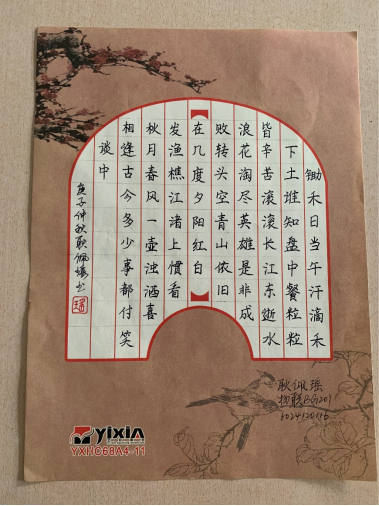 锄禾日当午汗滴禾
下土谁知盘中餐粒粒
皆辛苦滚滚长江东逝水
浪花淘尽英雄是非成
败转头空青山依旧
在几度夕阳红白
发渔樵江渚上慣看
秋月春风一壶浊酒喜
相逢古今多少事都付笑
谈中
庚子仲秋耿佩瑶书
耿佩瑶
yixin
YXHC68A4-11